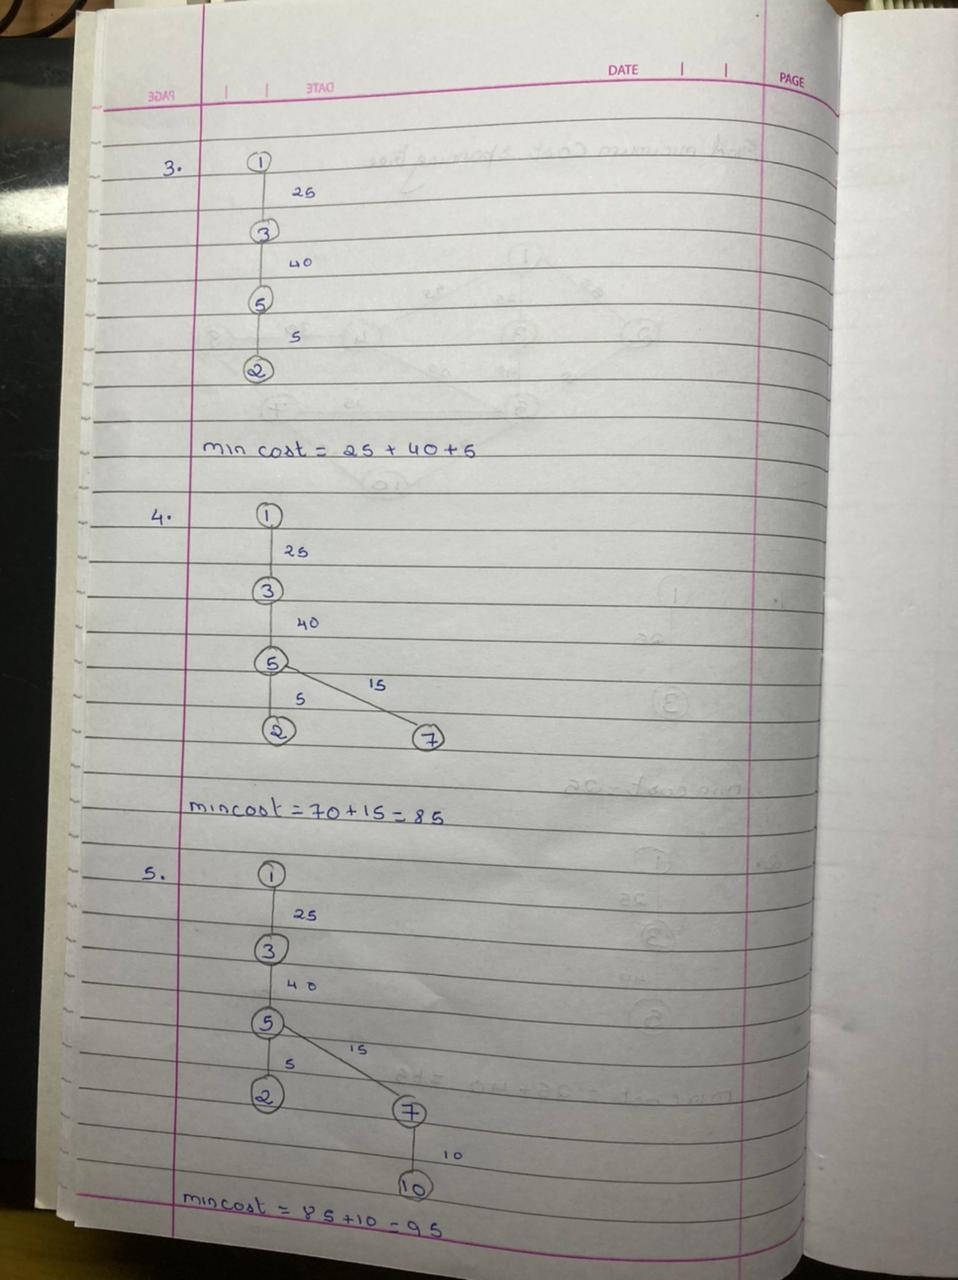 DATE
PAGE
3.
1
25
3
40
5
5
2
min cost = 25 + 40 + 5
4.
1
25
3
40
5
15
5
2
7
mincost = 70 + 15 = 85
5.
1
25
3
40
5
15
5
2
7
10
10
mincost = 85 + 10 = 95